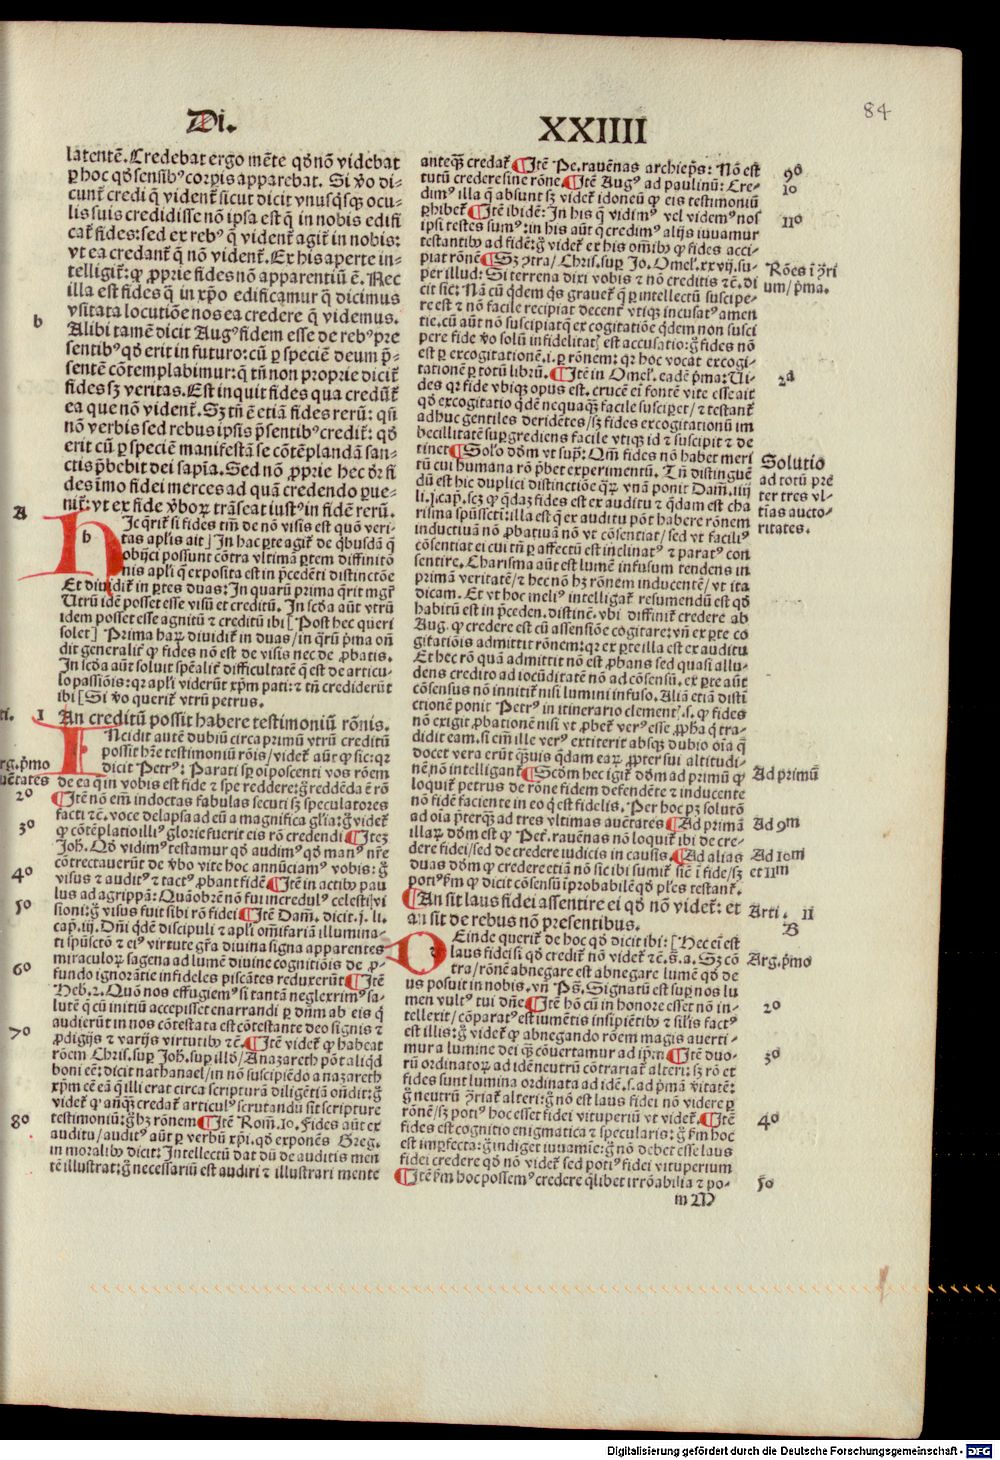 84
Di.
XXIIII
latentē. Credebat ergo mēte qđ nō videbat
ꝑ hoc qđ sensibꝰ corꝑis apparebat. Si ꝟo di-
cunt̃ credi q̄ vident̃ sicut dicit vnusqͥsqꝫ ocu-
lis suis credidisse nō ipsa est q̄ in nobis edifi
cat̃ fides: sed ex rebꝰ q̄ vident̃ agit̃ in nobis:
vt ea credant̃ q̄ nō vident̃. Ex his aperte in-
telligit̃: ꝙ ꝓprie fides nō apparentiū ē. Nec
illa est fides q̄ in xp̄o edificamur q̄ dicimus
vsitata locutiōe nos ea credere q̄ videmus.
b
Alibi tamē dicit Augꝰ fidem esse de rebꝰ pre
sentibꝰ qđ erit in futuro: cū ꝑ speciē deum p̄-
sentē cōtemplabimur: q̄ tn̄ non proprie dicit̃
fides sꝫ veritas. Est inquit fides qua credūt̃
ea que nō vident̃. Sꝫ tn̄ ē etiā fides rerū: qn̄
nō verbis sed rebus ipsis p̄sentibꝰ credit̃: qđ
erit cū ꝑ speciē manifestā se cōtēplandā san-
ctis p̄bebit dei sapīa. Sed nō ꝓprie hec dr̄ fi
des imo fidei merces ad quā credendo ꝑue-
nit̃: vt ex fide ꝟboꝝ trāseat iustꝰ in fidē rerū.
A
b
HIc q̄rit̃ si fides tm̄ de nō visis est quō veri-
tas aplis ait] In hac ꝑte agit̃ de qͥbusdā q̄
obijci possunt cōtra vltimā ꝑtem diffinitō
nis apli q̄ exposita est in p̄cedēti distinctōe
Et diuidit̃ in ꝑtes duas: In quarū prima q̄rit mgr̄
Vtrū idē posset esse visū et creditū. In scđa aūt vtrū
idem posset esse agnitū ⁊ creditū ibi [Post hec queri
solet] Prima haꝝ diuidit̃ in duas / in qͣrū p̄ma oñ
dit generalit̃ ꝙ fides nō est de visis nec de ꝓbatis.
In scđa aūt soluit sp̄ealit̃ difficultatē q̄ est de articu-
lo passiōis: qꝛ apli viderūt xp̄m pati: ⁊ tn̄ crediderūt
ibi [Si ꝟo querit̃ vtrū petrus.
ti. I
An creditū possit habere testimoniū rōnis.
rg. p̄mo
uētates
INcidit autē dubiū circa primū vtrū creditū
possit hr̄e testimoniū rōis / videt̃ aūt ꝙ sic: qꝛ
dicit Petrꝰ: Parati sp̄ oi poscenti vos rōem
de ea q̄ in vobis est fide ⁊ spe reddere: g̊ reddēda ē rō
2⁰
¶Itē nō em̄ indoctas fabulas secuti sꝫ speculatores
facti ⁊ē. voce delapsa ad eū a magnifica gl̄ia: g̊ videt̃
3⁰
ꝙ cōtēplatio illiꝰ glorie fuerit eis rō credendi ¶Itēꝫ
Joh. Qđ vidimꝰ testamur qđ audimꝰ qđ manꝰ nr̄e
cōtrectauerūt de ꝟbo vite hoc annūciamꝰ vobis: g̊
4⁰
visus ⁊ auditꝰ ⁊ tactꝰ ꝓbant fidē ¶Itē in actibꝰ pau
lus ad agrippā: Quāobrē nō fui incredulꝰ celesti vi
5⁰
sioni: g̊ visus fuit sibi rō fidei ¶Itē Dam̄. dicit. j. li.
cap. iij. Dn̄i qͥdē discipuli ⁊ apli om̄ifariā illumina-
ti spūsctō ⁊ eiꝰ virtute gr̄a diuina signa apparentes
miraculoꝝ sagena ad lumē diuine cognitiōis de ꝓ-
6⁰
fundo ignorātie infideles piscātes reduxerūt ¶Itē
Heb. 2. Quō nos effugiemꝰ si tantā neglexrimꝰ sa-
lutē q̄ cū initiū accepisset enarrandi ꝑ dn̄m ab eis q̄
audierūt in nos cōtestata est cōtestante deo signis ⁊
7⁰
ꝓdigijs ⁊ varijs virtutibꝰ ⁊ē. ¶Itē videt̃ ꝙ habeat
rōem Chrīs. suꝑ Joh. suꝑ illđ / A nazareth pōt aliqͥd
boni eē: dicit nathanael / in nō suscipiēdo a nazareth
xp̄m eē ea q̄ illi erat circa scripturā diligētiā oñdit: g̊
videt̃ ꝙ an̄qꝫ credat̃ articulꝰ scrutandū sit scripture
8⁰
testimoniū: g̊ hꝫ rōnem ¶Itē Rom̄. 10. Fides aūt ex
auditu / auditꝰ aūt ꝑ verbū xp̄i. qđ exponēs Greg.
in moralibꝰ dicit: Intellectū dat dū de auditis men
tē illustrat: g̊ necessariū est audiri ⁊ illustrari mente
anteqꝫ credat̃ ¶Itē Pe. rauēnas archiep̄s: Nō est
9⁰
tutū credere sine rōne ¶Itē Augꝰ ad paulinū: Cre-
10
dimꝰ illa q̄ absunt sꝫ videt̃ idoneū ꝙ eis testimoniū
ꝑhibet̃ ¶Itē ibidē: In his q̄ vidimꝰ vel videmꝰ nos
11⁰
ipsi testes sumꝰ: in his aūt q̄ credimꝰ alijs iuuamur
testantibꝰ ad fidē: g̊ videt̃ ex his om̄ibꝰ ꝙ fides acci-
piat rōnē ¶Sꝫ ꝯtra / Chrīs. suꝑ Jo. Omeľ. xxvij. su-
Rōes ī ꝯ̄ri
um / p̄ma.
per illud: Si terrena dixi vobis ⁊ nō creditis ⁊ē. di
cit sic: Nā cū qͥdem qͥs grauet̃ q̄ ꝑ intellectū suscipe-
re est ⁊ nō facile recipiat decent̃ vtiqꝫ incusatꝰ amen
tie. cū aūt nō suscipiat q̄ ex cogitatiōe qͥdem non susci
pere fide ꝟo solū infidelitatꝭ est accusatio: g̊ fides nō
est ꝑ excogitationē. i. ꝑ rōnem: qꝛ hoc vocat excogi-
tationē ꝑ totū librū. ¶Itē in Omeľ. eadē p̄ma: Ui-
2ª
des qꝛ fide vbiqꝫ opus est. crucē ei fontē vite esse ait
qđ excogitatio qͥdē nequaqꝫ facile suscip̄et / ⁊ testant̃
adhuc gentiles deridētes / sꝫ fides excogitationū im
becillitatē suꝑgrediens facile vtiqꝫ id ⁊ suscipit ⁊ de
tinet ¶Solo dōm vt supͣ: Qm̄ fides nō habet meri
Solutio
ad totū pre
ter tres vl-
tīas aucto-
ritates.
tū cui humana rō p̄bet experimentū. Tn̄ distinguē
dū est hic duplici distinctiōe qͣꝝ vnā ponit Dam̄. iiij
li. j. cap. scꝫ ꝙ qͥdaꝫ fides est ex auditu ⁊ qͥdam est cha
risma spūsscti: illa est q̄ ex auditu pōt habere rōnem
inductiuā nō ꝓbatiuā nō vt cōsentiat / sed vt faciliꝰ
cōsentiat ei cui tn̄ ꝑ affectū est inclinatꝰ ⁊ paratꝰ con
sentire. Charisma aūt est lumē infusum tendens in
primā veritatē / ⁊ hec nō hꝫ rōnem inducentē / vt ita
dicam. Et vt hoc meliꝰ intelligat̃ resumendū est qđ
habitū est in p̄ceden. distinc̄. vbi diffinit̃ credere ab
Aug. ꝙ credere est cū assensiōe cogitare: vn̄ ex ꝑte co
gitatiōis admittit rōnem: qꝛ ex ꝑte illa est ex auditu
Et hec rō quā admittit nō est ꝓbans sed quasi allu-
dens credito ad iocūditatē nō ad cōsensū. ex ꝑte aūt
cōsensus nō innitit̃ nisi lumini infuso. Aliā etiā disti
ctionē ponit Petrꝰ in itinerario clement̃. s. ꝙ fides
nō exigit ꝓbationē nisi vt ꝓbet̃ verꝰ esse ꝓph̄a q̄ tra-
didit eam. si em̄ ille verꝰ extiterit absqꝫ dubio oīa q̄
docet vera erūt qͣuis qͥdam eaꝝ ꝓpter sui altitudi-
nē nō intelligant̃ ¶Scđm hec igit̃ dōm ad primū ꝙ
Ad primū
loquit̃ petrus de rōne fidem defendēte ⁊ inducente
nō fidē faciente in eo q̄ est fidelis. Per hoc pꝫ solutō
ad oīa p̄terqꝫ ad tres vltimas auctates ¶Ad primā
Ad 9ᵐ
illaꝝ dōm est ꝙ Pet̃. rauēnas nō loquit̃ ibi de cre-
dere fidei / sed de credere iudicis in causis. ¶Ad alias
Ad 10ᵐ
et 11ᵐ
duas dōm ꝙ credere etiā nō sic ibi sumit̃ sic̄ ī fide / sꝫ
potiꝰ ẜm ꝙ dicit cōsensū īprobabilē qđ ples testant̃.
¶An sit laus fidei assentire ei qđ nō videt̃: et
an sit de rebus nō presentibus.
Arti. II
B
DEinde querit̃ de hoc qđ dicit ibi: [Hec ei est
laus fidei si qđ credit̃ nō videt̃ ⁊ē. s. a. Sꝫ cō
Arg. p̄mo
tra / rōnē abnegare est abnegare lumē qđ de
us posuit in nobis. vn̄ Ps̄. Signatū est suꝑ nos lu
men vultꝰ tui dn̄e ¶Itē hō cū in honore esset nō in-
2⁰
tellexit / cōparatꝰ est iumētis insipiētibꝰ ⁊ silis factꝰ
est illis: g̊ videt̃ ꝙ abnegando rōem magis auerti-
mur a lumine dei qꝫ cōuertamur ad ip̄m ¶Itē duo-
3⁰
rū ordinatoꝝ ad idē neutrū cōtrariat̃ alteri: sꝫ rō et
fides sunt lumina ordinata ad idē. s. ad p̄mā ꝟitatē:
g̊ neutrū ꝯ̄riat̃ alteri: g̊ nō est laus fidei nō videre ꝑ
rōnē / sꝫ potiꝰ hoc esset fidei vituperiū vt videt̃. ¶Itē
4⁰
fides est cognitio enigmatica ⁊ specularis: g̊ ẜm hoc
est imꝑfecta: g̊ indiget iuuamīe: g̊ nō debet esse laus
fidei credere qđ nō videt̃ sed potiꝰ fidei vituperium
¶Itē ẜm hoc possemꝰ credere qͥlibet irrōabilia ⁊ po-
5⁰
m M
Digitalisierung gefördert durch die Deutsche Forschungsgemeinschaft - DFG